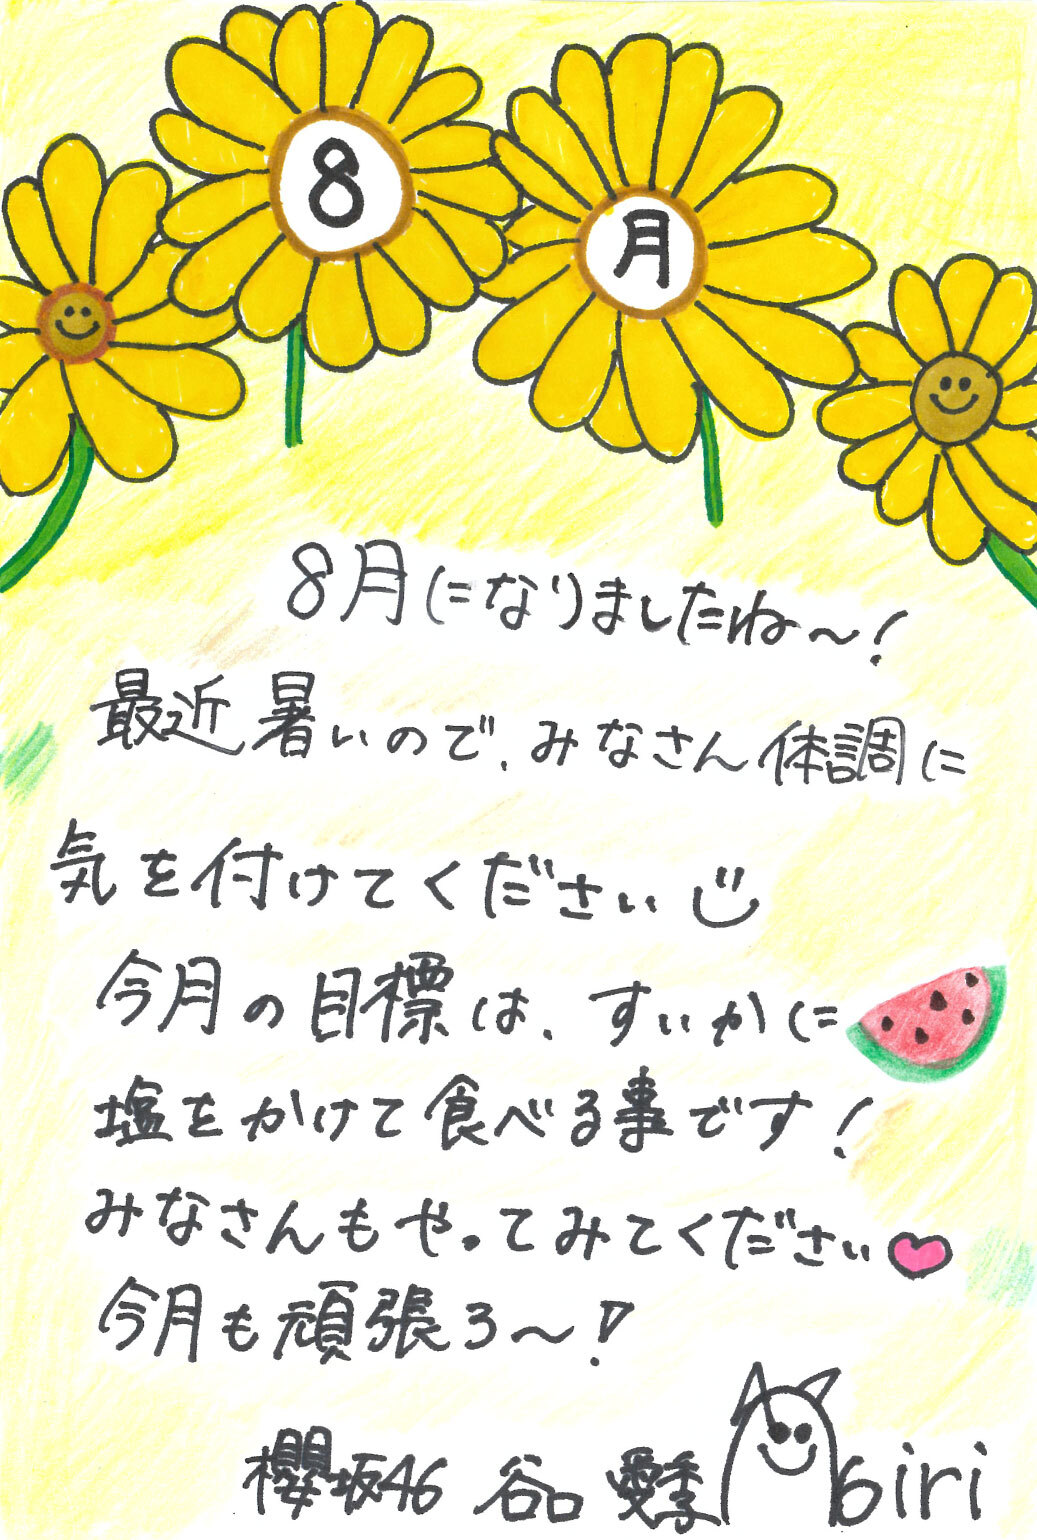 8月
8月になりましたね〜！
最近暑いので、みなさん体調に
気を付けてください
今月の目標は、すいかに
塩をかけて食べる事です！
みなさんもやってみてください
今月も頑張ろ〜！
櫻坂46 谷口 愛季 airi